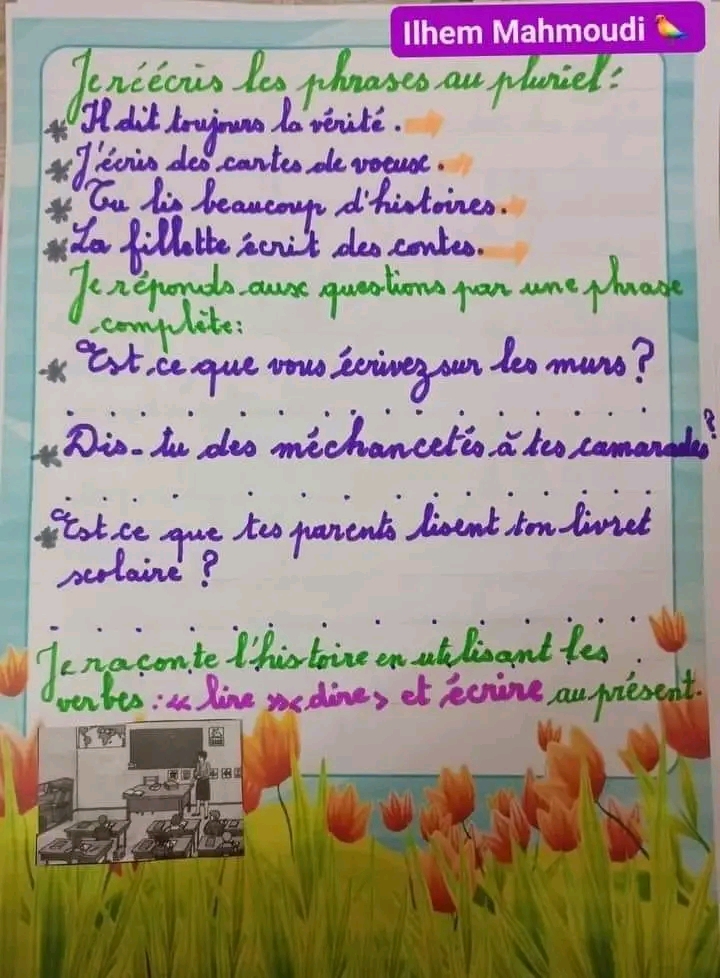 Ilhem Mahmoudi
Je réécris les phrases au pluriel :
* Il dit toujours la vérité.
* J'écris des cartes de voeux.
* Tu lis beaucoup d'histoires.
* La fillette écrit des contes.
Je réponds aux questions par une phrase
complète :
* Est-ce que vous écrivez sur les murs ?
* Dis-tu des méchancetés à tes camarades ?
* Est-ce que tes parents lisent ton livret
scolaire ?
Je raconte l'histoire en utilisant les
verbes : « lire » « dire » et écrire au présent.